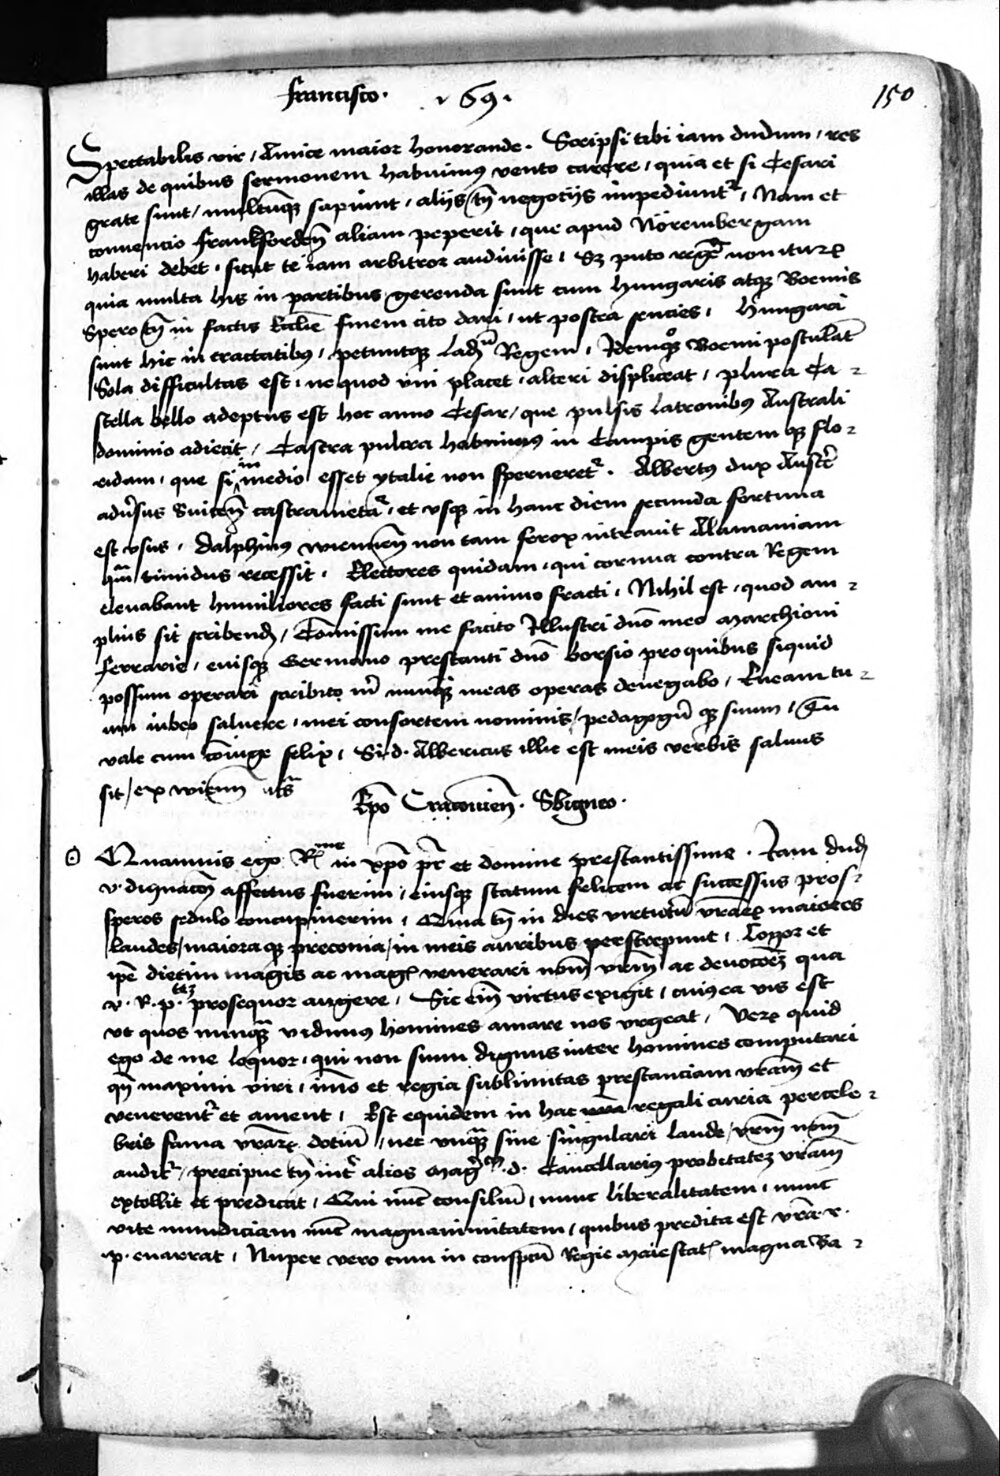 Francisco. 69. 150
Spectabilis vir / Amice maior honorande. Scripsi tibi iam dudum / res
illas de quibus sermonem habuimus vento carere / quia et si Cesari
grate sunt / multumque sapiunt / aliis tñ negociis impediuntr / Nam et
convencio Franckfordeñ aliam peperit / que apud Nörembergam
haberi debet / sicut te iam arbitror audivisse / Sz puto regẽ non iturum
quia multa his in partibus gerenda sunt cum hungaris atque Boemis
Spero tñ in factis Ecclie finem cito dari / ut postea sencies / Hungari
sunt hic in tractatibus / petuntque Ladm Regem / Idemque Boemi postulãt
Sola difficultas est / ne quod uni placet / alteri displiceat / plura Ca-
stella bello adeptus est hoc anno Cesar / que pulsis latronibus Australi
dominio adiecit / Castra pulcra habuimus in Campis gentemque flo-
ridam / que si in medio esset ytalie non sperneretr. Albertus dux Austrẽ
advsus Suiceñ castrametatr / et usque in hanc diem secunda fortuna
est usus / dalphinus vienneñ non tam ferox intravit Alamaniam
qm timidus recessit / Electores quidam / qui cornua contra Regem
elevabant humiliores facti sunt et animo fracti / Nihil est / quod am-
plius sit scribend / Comissum me facito Illustri dño meo marchioni
ferrarie / eiusque Germano prestanti dño borsio pro quibus siquid
possum operari scribito nã nunqm meas operas denegabo / Eneam tu-
um iubeo salvere / mei consortem nominis / pedagogũ que suum / Tu
vale cum coniuge felix / Si d. Albericus illic est meis verbis salvus
sit / ex
Epo Cracovieñ. Sbigneo.
Quamvis ego Rme in xpo pr et domine prestantissime. Iam dud
v. dignacõi affectus fuerim / eiusque statum felicem ac successus pros-
speros sedulo concupiverim / Quia tñ in dies virtutũ vrarum maiores
laudes / maioraque preconia / in meis auribus perstrepunt / Cogor et
ipe dietim magis ac mag venerari nom vrm ac devocõez qua
v. R. p. tez prosequor augere / Sic eĩm virtus exigit / cuius ea vis est
ut quos nunqm vidimus homines amare nos urgeat / Verum quid
ego de me loquor / qui non sum dignus inter homines computari
qñ maximi viri / imo et regia sublimitas prestanciam vram et
venerentr et ament / Est equidem in hac regali curia percele-
bris fama vrarum dotiũ / nec unqm sine singulari laude / vrm nom
auditr / precipue tñ intr alios magcus d. Cancellarius probitatez vram
extollit et predicat / Qui nũc consiliũ / nunc liberalitatem / nunc
vite mundiciam nũc magnanimitatem / quibus predita est vra r.
p. enarrat / Nuper vero cum in conspcũ Regie Maiestat magna va-